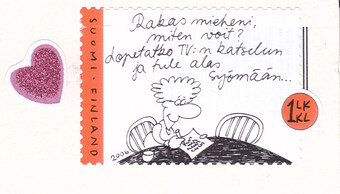 SUOMI • FINLAND
Rakas mieheni,
miten voit?
Lopetatko TV:n katselun
ja tule alas
syömään...
1 LK
KL
2006